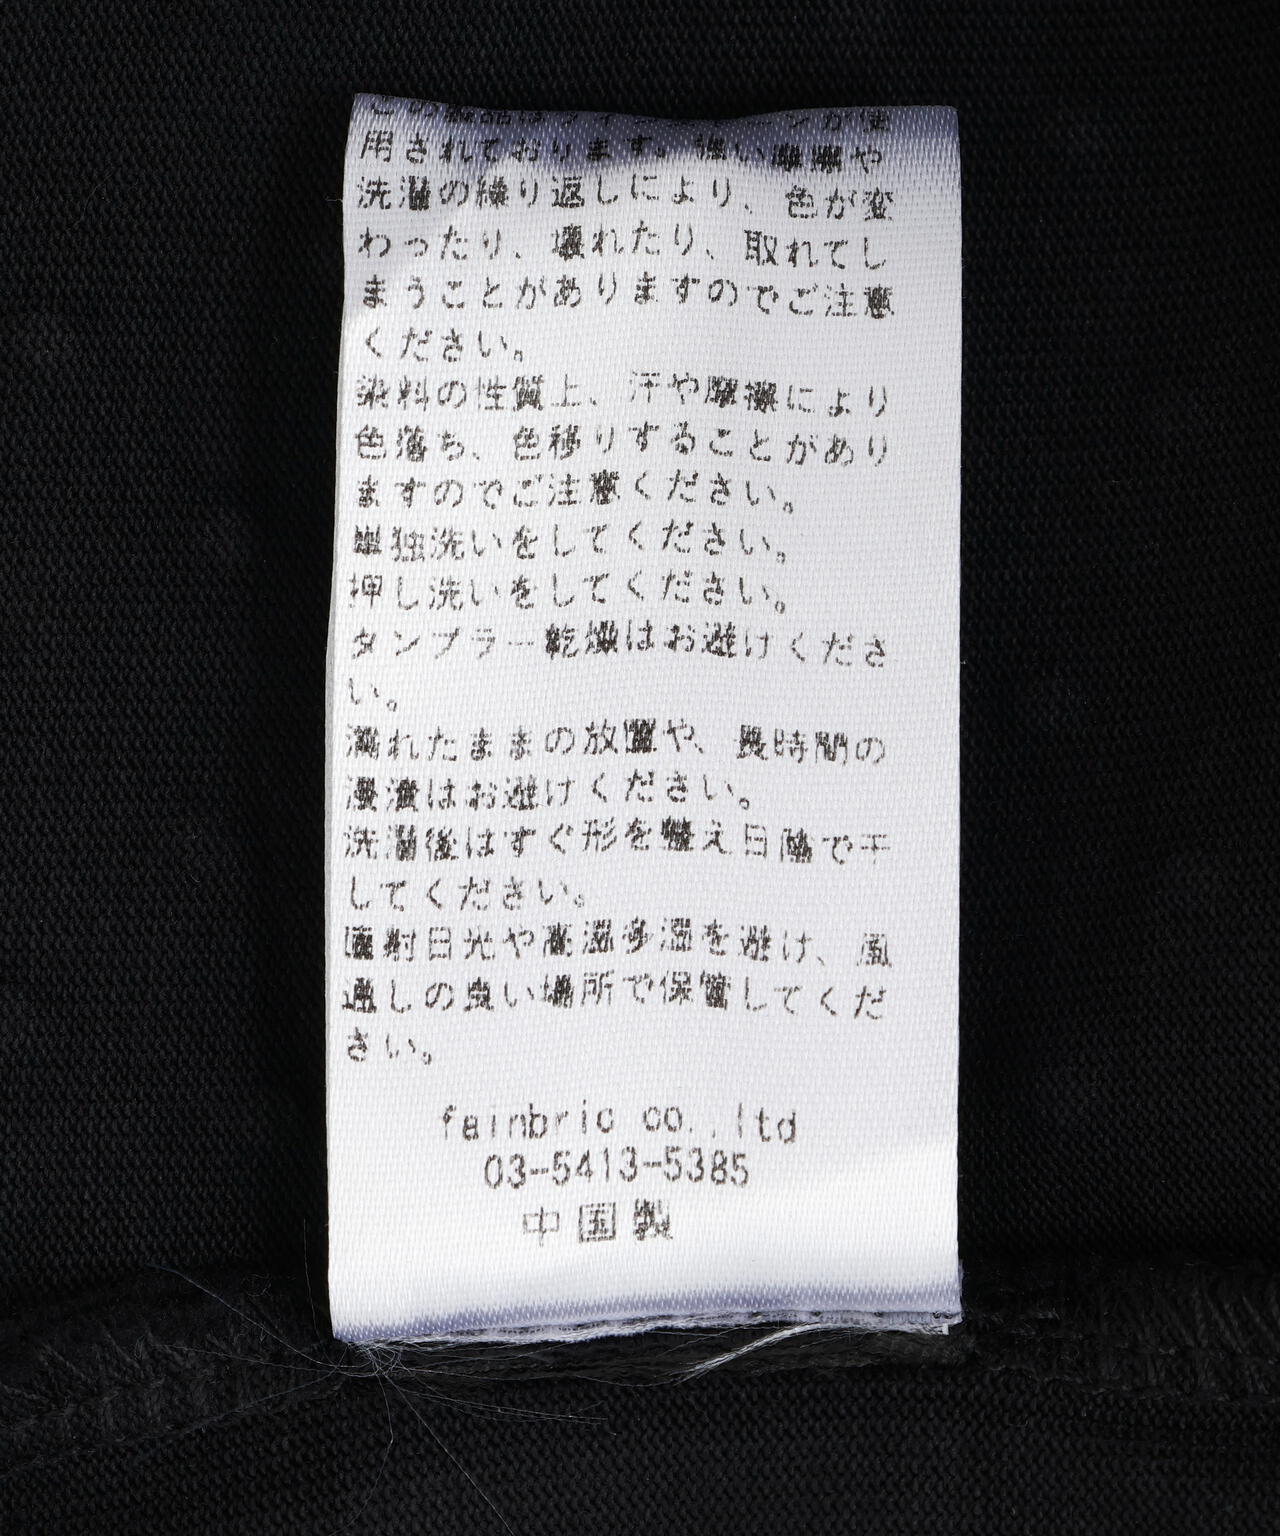 この製品はラインストーンが使
用されております。強い摩擦や
洗濯の繰り返しにより、色が変
わったり、壊れたり、取れてし
まうことがありますのでご注意
ください。
染料の性質上、汗や摩擦により
色落ち、色移りすることがあり
ますのでご注意ください。
単独洗いをしてください。
押し洗いをしてください。
タンブラー乾燥はお避けくださ
い。
濡れたままの放置や、長時間の
浸漬はお避けください。
洗濯後はすぐ形を整え日陰で干
してください。
直射日光や高温多湿を避け、風
通しの良い場所で保管してくだ
さい。
fainbric co.,ltd
03-5413-5385
中国製